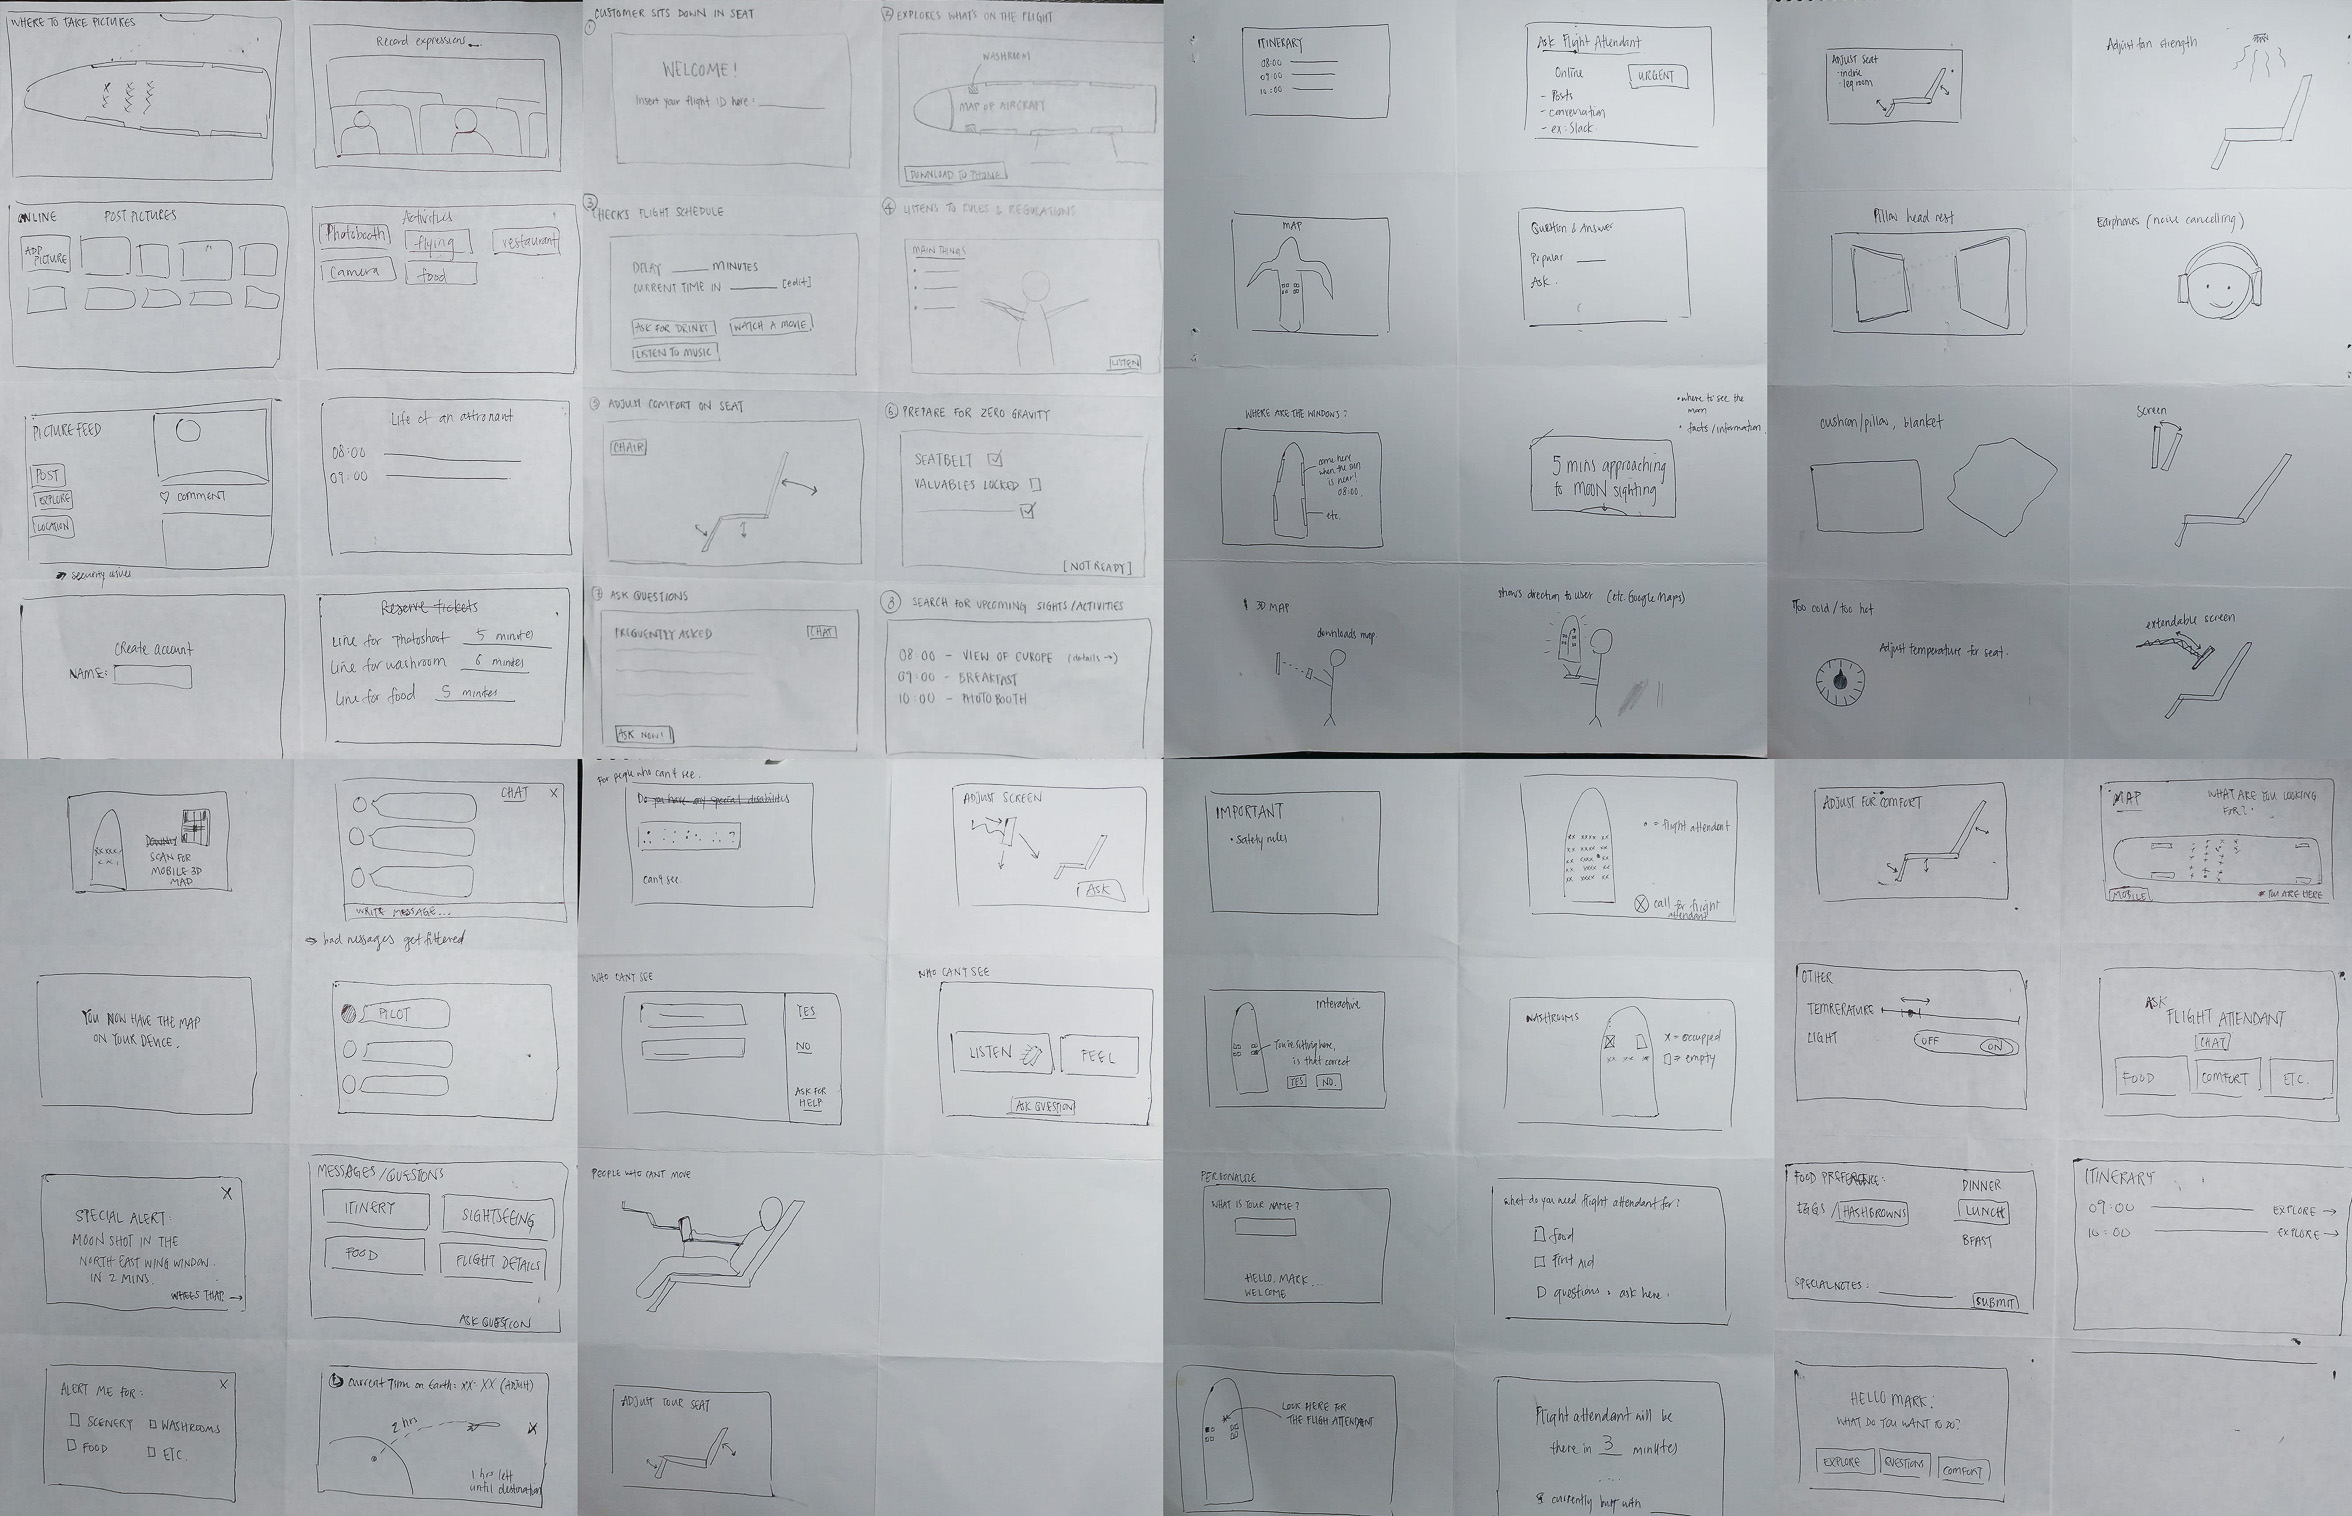 WHERE TO TAKE PICTURES
Record expressions
ONLINE
POST PICTURES
ADD PICTURE
Activities
Photobooth
flying
restaurant
Camera
food
PICTURE FEED
POST
EXPLORE
LOCATION
♡ COMMENT
→ security issues
Life of an astronaut
08:00
09:00
Create account
NAME:
Reserve tickets
Line for Photoshoot 5 minutes
Line for washroom 6 minutes
Line for food 5 minutes
① CUSTOMER SITS DOWN IN SEAT
WELCOME!
Insert your flight ID here:
② EXPLORES WHAT'S ON THE FLIGHT
WASHROOM
MAP OF AIRCRAFT
DOWNLOAD TO PHONE
③ CHECKS FLIGHT SCHEDULE
DELAY ____ MINUTES
CURRENT TIME IN ____ [edit]
ASK FOR DRINKS
WATCH A MOVIE
LISTEN TO MUSIC
④ LISTENS TO RULES & REGULATIONS
MAIN THINGS
LISTEN
⑤ ADJUST COMFORT ON SEAT
CHAIR
⑥ PREPARE FOR ZERO GRAVITY
SEATBELT
VALUABLES LOCKED
[NOT READY]
⑦ ASK QUESTIONS
FREQUENTLY ASKED
CHAT
ASK NOW!
⑧ SEARCH FOR UPCOMING SIGHTS/ACTIVITIES
08:00 - VIEW OF EUROPE (details →)
09:00 - BREAKFAST
10:00 - PHOTOBOOTH
ITINERARY
08:00
09:00
10:00
Ask Flight Attendant
Online
- Posts
- conversation
- ex: Slack
URGENT
MAP
Question & Answer
Popular
Ask.
WHERE ARE THE WINDOWS?
come here
when the sun
is near!
08:00.
etc.
• where to see the
moon
• facts/information
5 mins approaching
to MOON sighting
3D MAP
downloads map.
shows direction to user (etc. Google Maps)
ADJUST Seat
- incline
- leg room
Adjust fan strength
Pillow head rest
Earphones (noise cancelling)
cushion/pillow, blanket
Screen
Too cold/too hot
Adjust temperature for seat.
extendable screen
SCAN FOR
MOBILE 3D
MAP
CHAT X
WRITE MESSAGE...
→ bad messages get filtered
YOU NOW HAVE THE MAP
ON YOUR DEVICE.
PILOT
X
SPECIAL ALERT:
MOON SHOT IN THE
NORTH EAST WING WINDOW
IN 2 MINS.
WHERES THAT →
MESSAGES/QUESTIONS
ITINERY
SIGHTSEEING
FOOD
FLIGHT DETAILS
ASK QUESTION
ALERT ME FOR: X
SCENERY
WASHROOMS
FOOD
ETC.
Current Time on Earth: XX:XX (ADJUST)
2 hrs
X
1 hrs left
until destination
For people who can't see.
Do you have any special disabilities
?
can't see.
ADJUST SCREEN
ASK
WHO CANT SEE
YES
NO
ASK FOR
HELP
WHO CANT SEE
LISTEN
FEEL
ASK QUESTION
PEOPLE WHO CANT MOVE
ADJUST YOUR SEAT
IMPORTANT
• Safety rules
• = flight attendant
call for flight
attendant
interactive
You're sitting here,
is that correct
YES
NO.
WASHROOMS
X = occupied
□ = empty
PERSONALIZE
WHAT IS YOUR NAME?
HELLO, MARK...
WELCOME
What do you need flight attendant for?
food
First Aid
questions, ask here.
LOOK HERE FOR
THE FLIGH ATTENDANT
Flight attendant will be
there in 3 minutes
....
currently busy with
ADJUST FOR COMFORT
MAP
WHAT ARE YOU LOOKING
FOR?
MOBILE
* YOU ARE HERE
OTHER
TEMPERATURE
LIGHT
OFF
ON
ASK
FLIGHT ATTENDANT
CHAT
FOOD
COMFORT
ETC.
FOOD PREFERENCE:
EGGS / HASHBROWNS
DINNER
LUNCH
BFAST
SPECIAL NOTES:
SUBMIT
ITINERARY
09:00
EXPLORE →
10:00
EXPLORE →
HELLO MARK!
WHAT DO YOU WANT TO DO?
EXPLORE
QUESTIONS
COMFORT